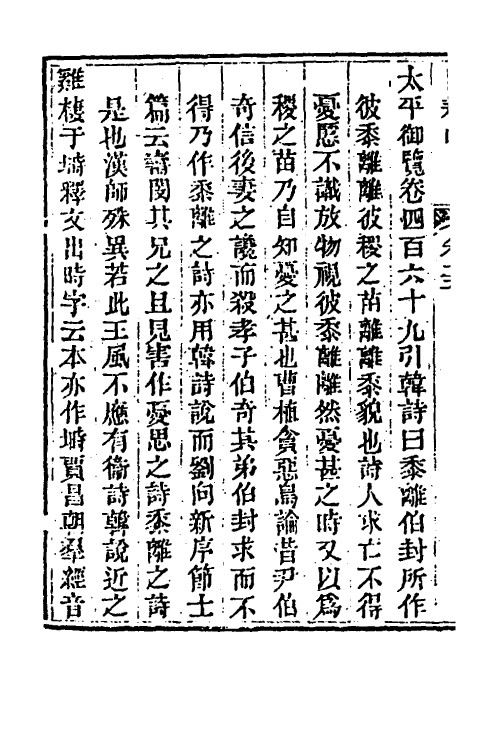 太平御覽卷四百六十九引韓詩曰黍離伯封所作
彼黍離離彼稷之苗離離黍貌也詩人求亡不得
憂懣不識放物視彼黍離離然憂甚之時又以爲
稷之苗乃自知憂之甚也曹植貪惡鳥論昔尹伯
奇信後妻之讒而殺孝子伯奇其弟伯封求而不
得乃作黍離之詩亦用韓詩說而劉向新序節士
篇云壽閔其兄之且見害作憂思之詩黍離之詩
是也漢師殊異若此王風不應有衞詩韓說近之
雞棲于塒釋文出時字云本亦作塒賈昌朝羣經音